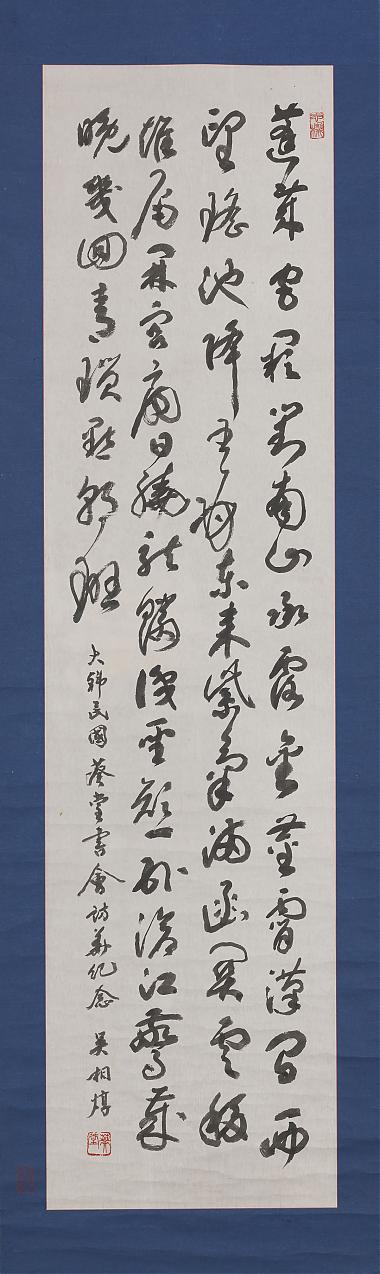 蓬萊宮闕對南山承露金莖霄漢間西
望瑤池降王母東來紫氣滿函關雲移
雉尾開宮扇日繞龍鱗識聖顏一臥滄江驚歲
晚幾回青瑣點朝班
大韓民國葵堂書會訪華紀念 吳相焞